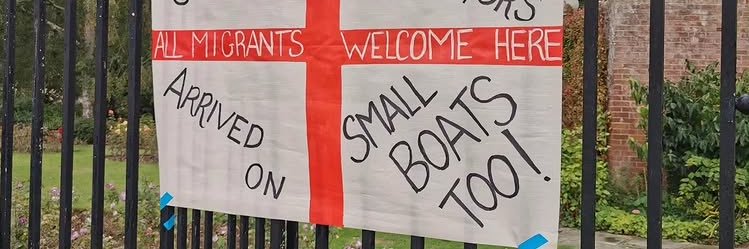 ALL MIGRANTS WELCOME HERE
ARRIVED
ON
SMALL
BOATS
TOO!